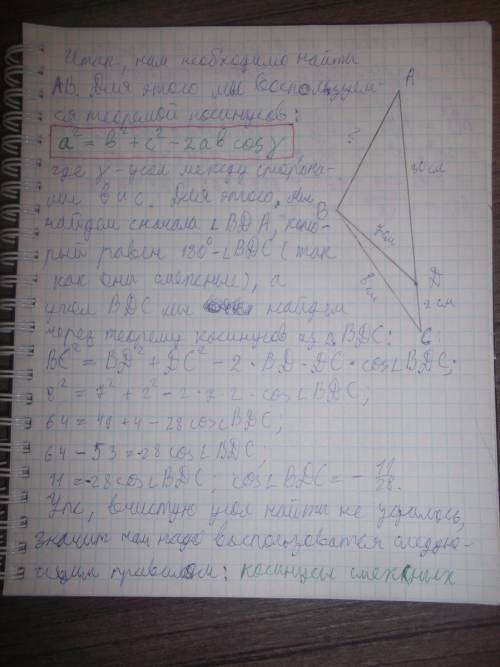 Итак, нам необходимо найти
AB. Для этого мы воспользуем-
ся теоремой косинусов:
a² = b² + c² - 2ab cosγ
где γ - угол между сторона-
ми b и c. Для этого, мы
найдём сначала ∠BDA, кото-
рый равен 180° - ∠BDC (так
как они смежные), а
угол BDC мы найдём
через теорему косинусов из △BDC:
BC² = BD² + DC² - 2 · BD · DC · cos∠BDC;
8² = 7² + 2² - 2 · 7 · 2 · cos∠BDC;
64 = 49 + 4 - 28cos∠BDC;
64 - 53 = -28cos∠BDC;
11 = -28cos∠BDC; cos∠BDC = - 11/28.
Упс, вчистую угол найти не удалось,
значит нам надо воспользоваться следую-
щим правилом: косинусы смежных
A
?
30 см
B
7 см
8 см
D
2 см
C